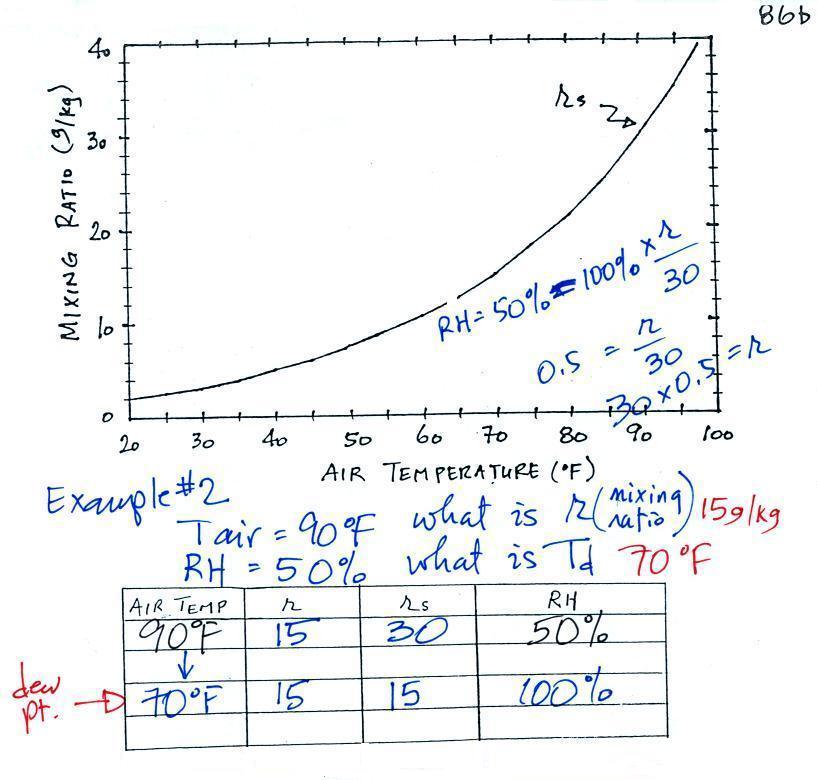 86b
MIXING RATIO (g/kg)
40
30
20
10
0
rs
RH = 50% = 100% × r/30
0.5 = r/30
30 × 0.5 = r
20 30 40 50 60 70 80 90 100
AIR TEMPERATURE (°F)
Example #2
Tair = 90°F what is r (mixing ratio) 15g/kg
RH = 50% what is Td 70°F
AIR TEMP r rs RH
90°F 15 30 50%
↓
dew pt. → 70°F 15 15 100%